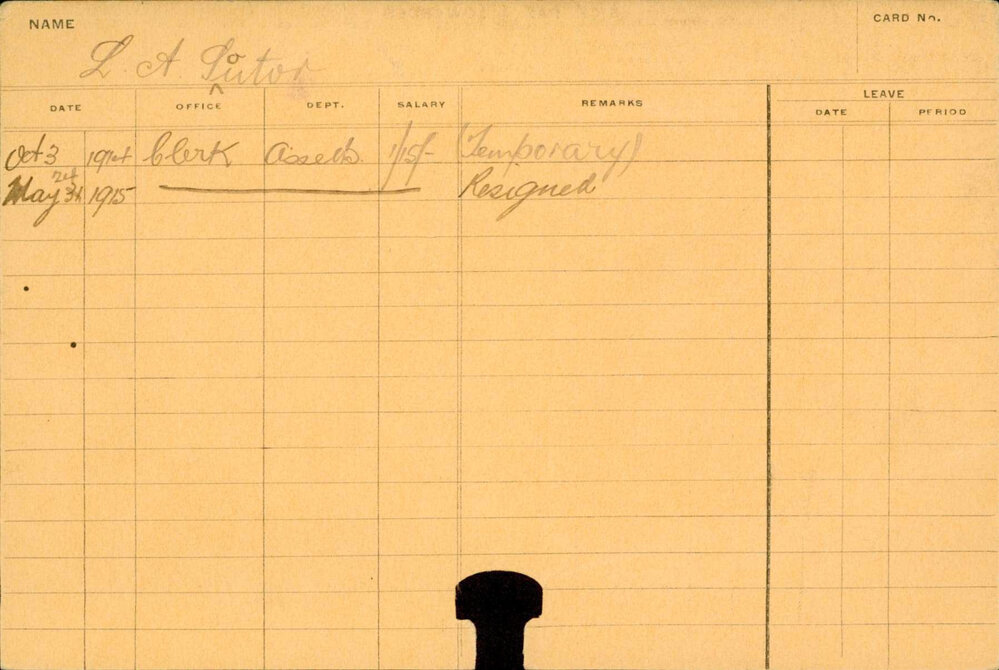 NAME
CARD No.
L. A. Sutor
DATE OFFICE DEPT. SALARY REMARKS LEAVE
DATE PERIOD
Oct 3 1914 Clerk 1/15/- (Temporary)
May 24 1915 Resigned